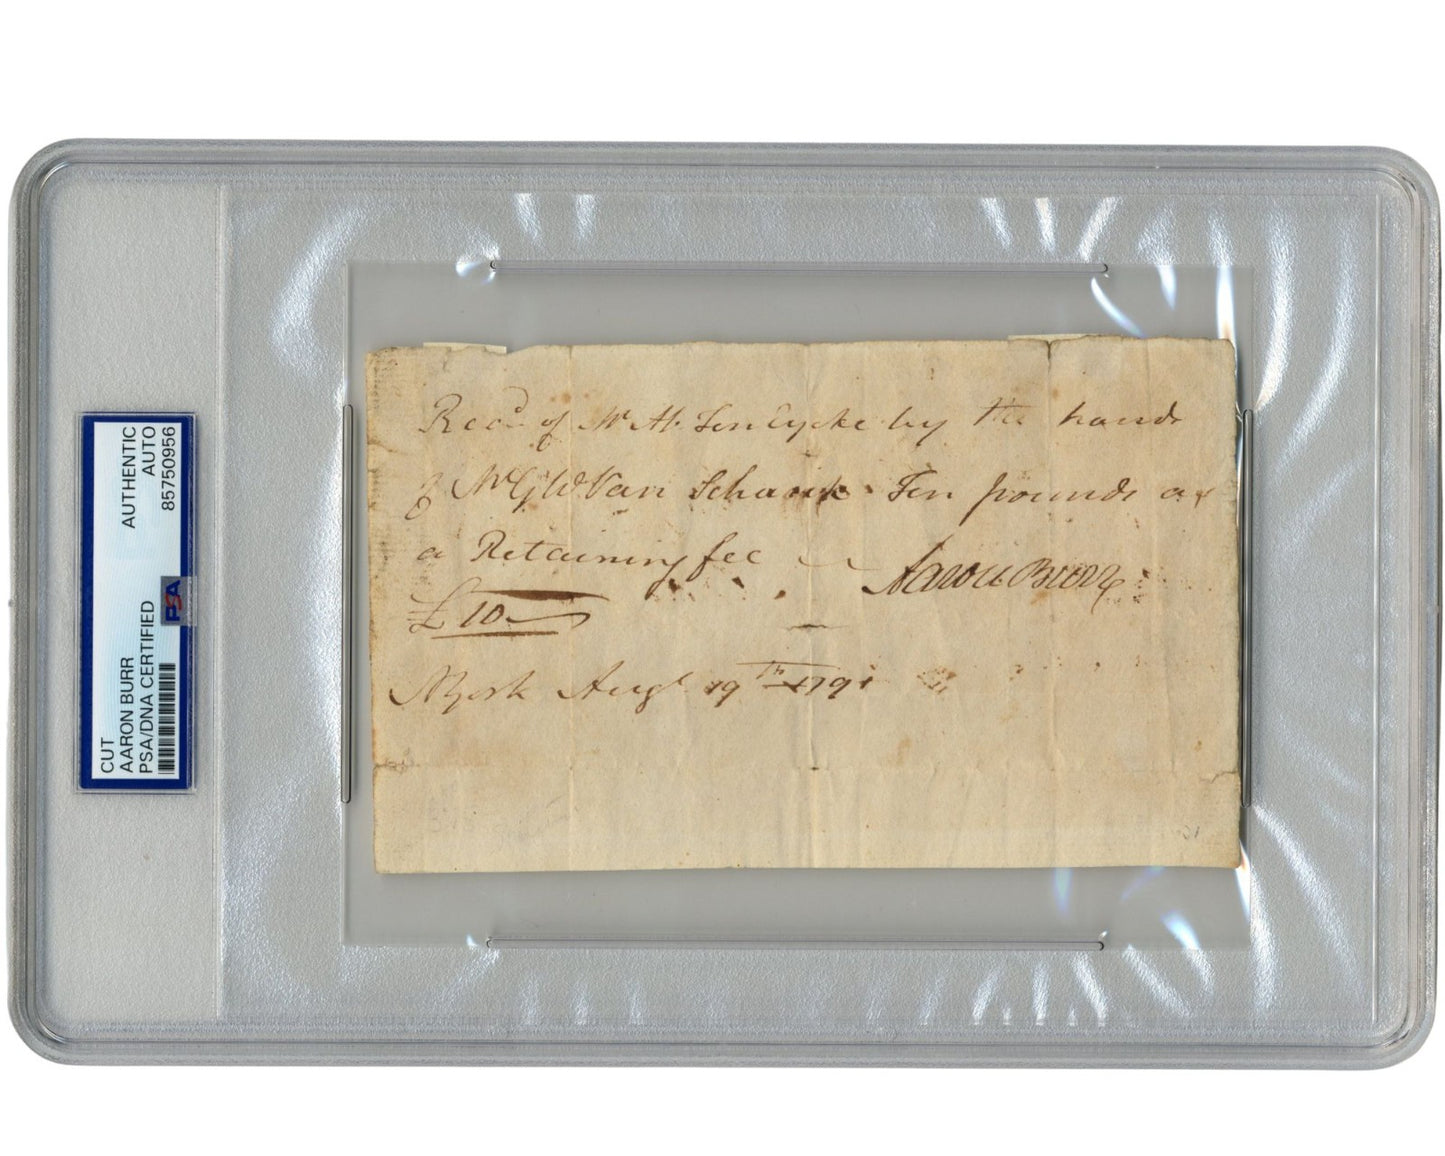 CUT
AARON BURR
PSA/DNA CERTIFIED
AUTHENTIC
AUTO
85750956
PSA
Recd of Mr H. Ten Eycke by the hands
of Mr G W Van Schaick Ten pounds as
a Retaining fee Aaron Burr
£10
NYork Augt 19th 1791